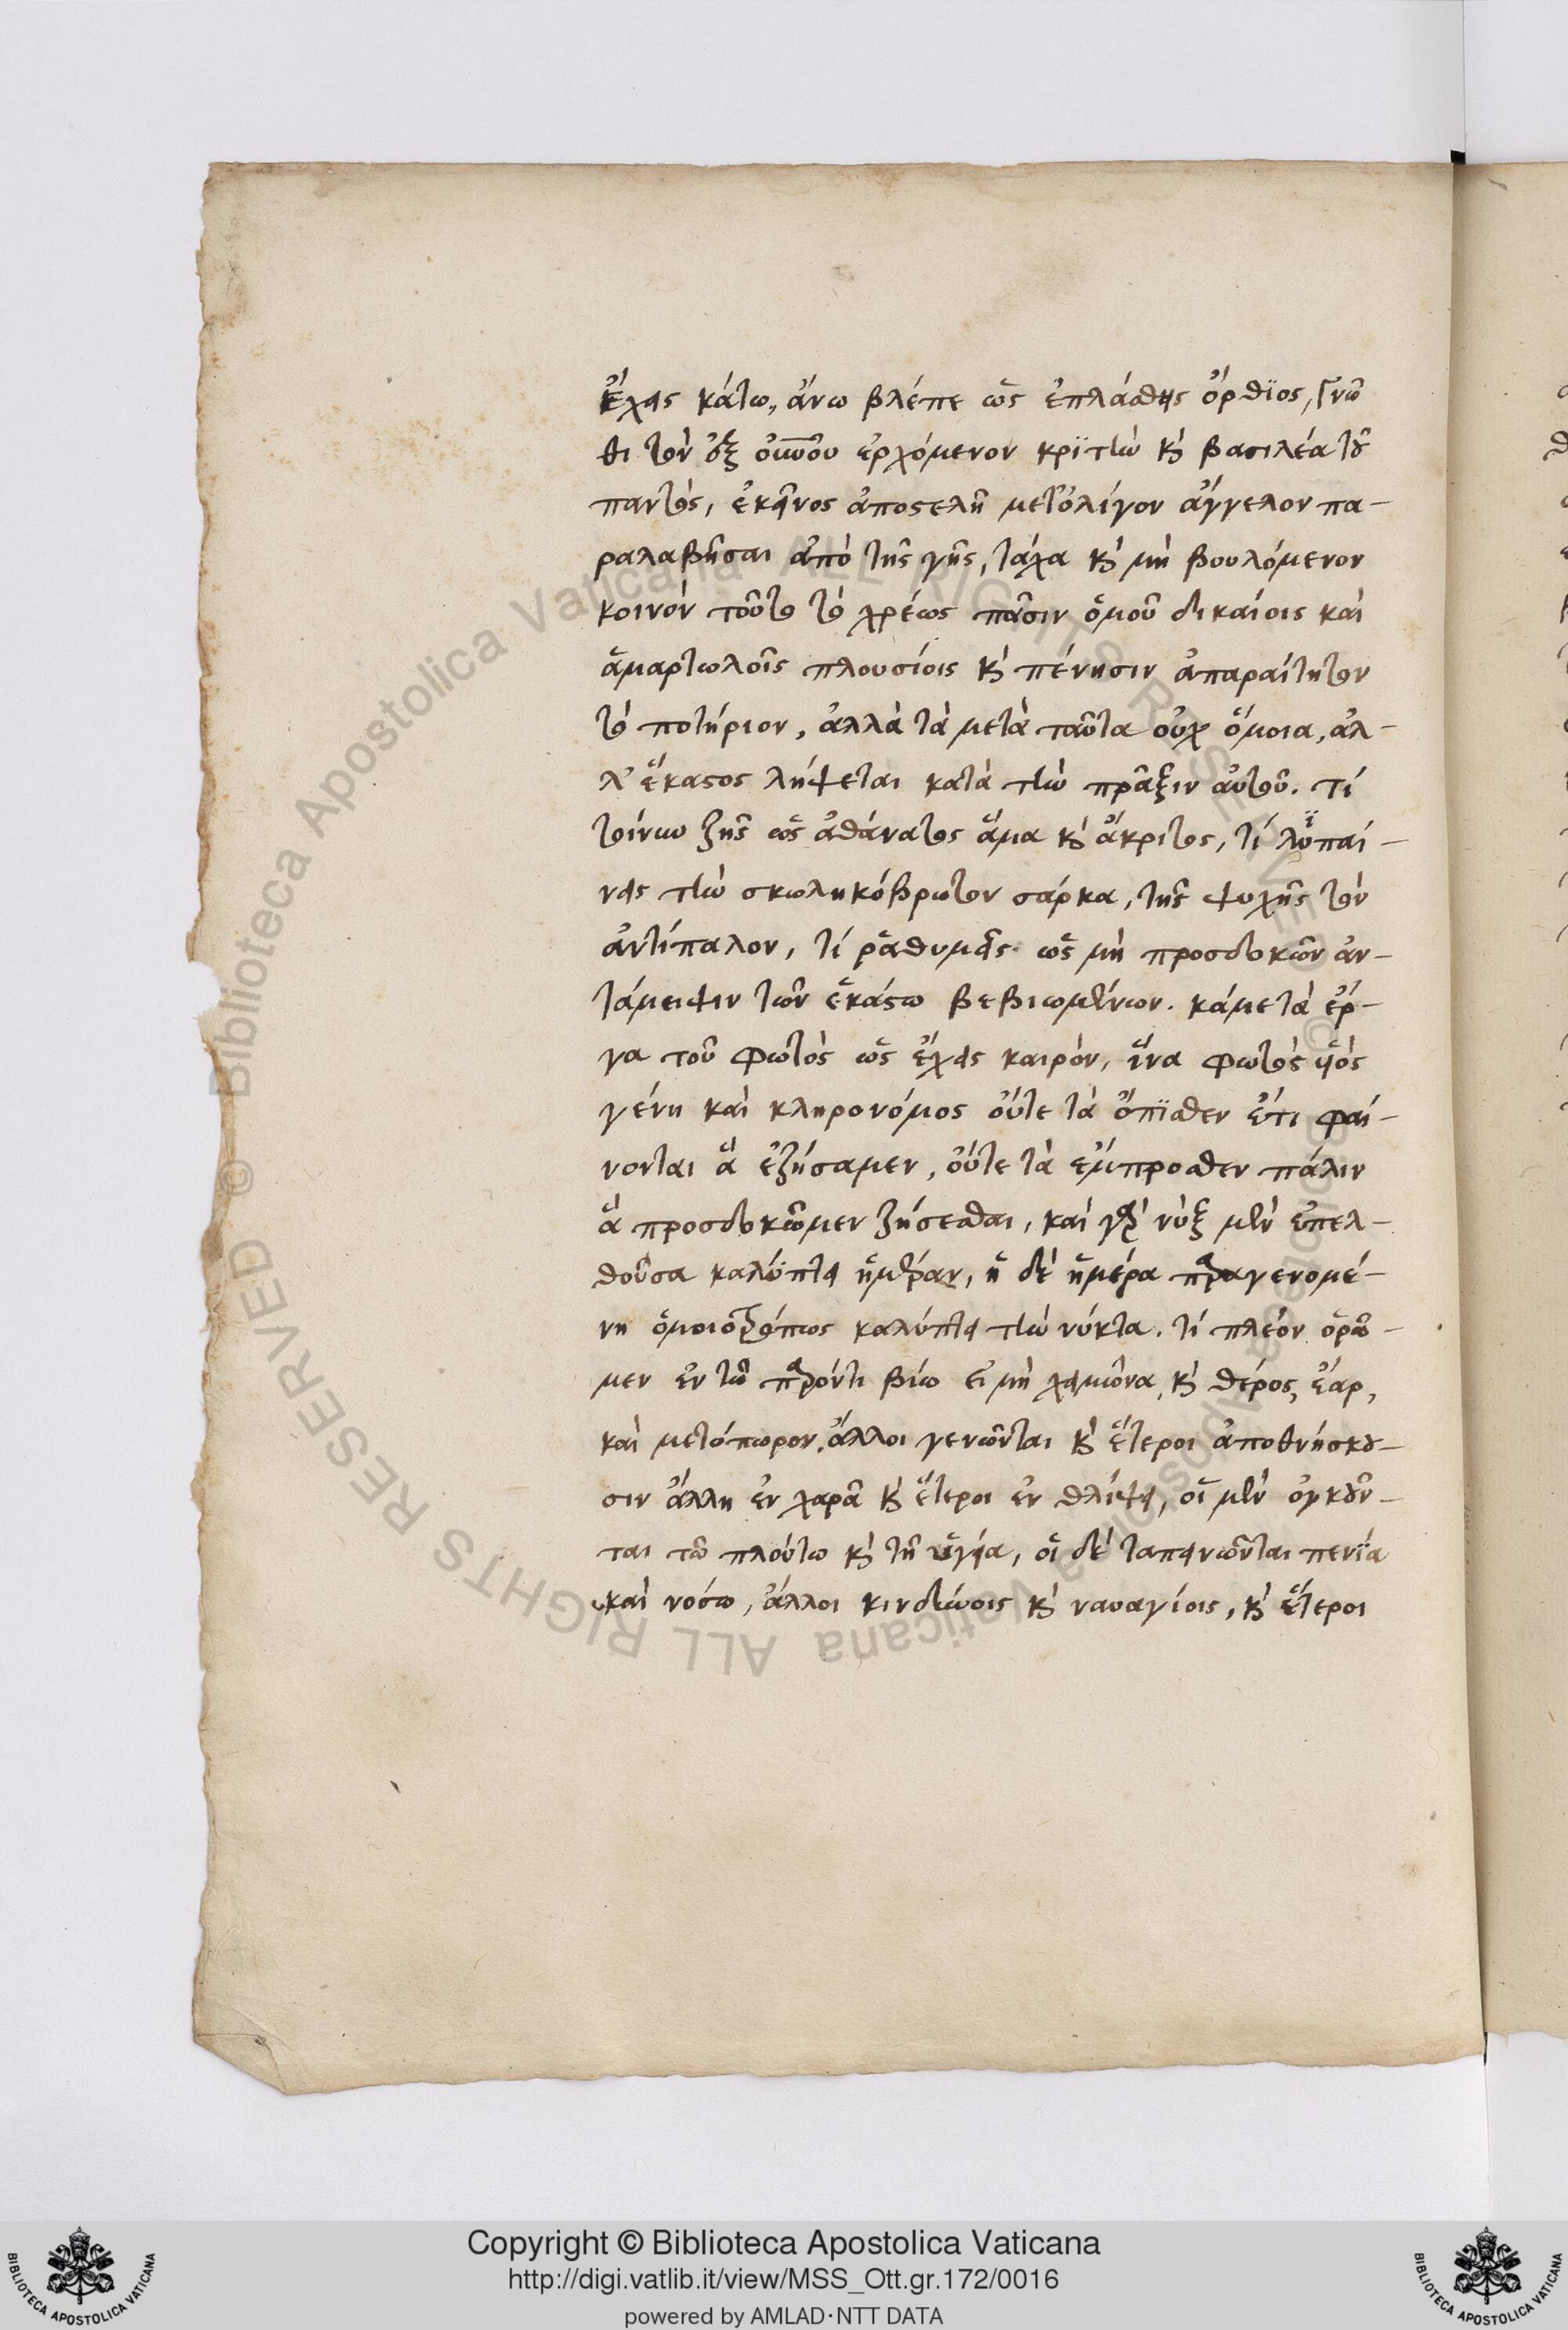 ἔχεις κάτω, ἄνω βλέπε ὡς ἐπλάσθης ὄρθϊος, γνῶ
θι τὸν ἐξ οὐνοῦ ἐρχόμενον κρϊτὴν κ̀ βασιλέα τοῦ
παντὸς, ἐκεῖνος ἀποστελῆ μετ'ὀλίγον ἄγγελον πα-
ραλαβῆσαι ἀπὸ τῆς γῆς, τάχα κ̀ μὴ βουλόμενον
κοινὸν τοῦτο τὸ χρέως πᾶσιν ὁμοῦ δικαίοις καὶ
ἁμαρτωλοῖς πλουσίοις κ̀ πένησιν ἀπαραίτητον
τὸ ποτήριον, ἀλλὰ τὰ μετὰ ταῦτα οὐχ ὅμοια, ἀλ-
λ' ἕκαστος λήψεται κατὰ τὴν πρᾶξιν αὐτοῦ. τί
τοίνυν ζῆς ὡς ἀθάνατος ἅμα κ̀ ἄκριτος, τί λϋπαί-
νεις τὴν σκωληκόβρωτον σάρκα, τῆς ψυχῆς τὸν
ἀντίπαλον, τί ῥαθυμεῖς ὡς μὴ προσδοκῶν ἀν-
τάμειψιν τῶν ἑκάστω βεβιωμένων. κάμε τὰ ἔρ-
γα τοῦ φωτὸς ὡς ἔχεις καιρὸν, ἵνα φωτὸς υἱὸς
γένη καὶ κληρονόμος οὔτε τὰ ὄπϊσθεν ἔτι φαί-
νονται ἃ ἐζήσαμεν, οὔτε τὰ ἔμπροσθεν πάλιν
ἃ προσδοκῶμεν ζήσεσθαι, καὶ γὰρ νὺξ μὲν ἐπελ-
θοῦσα καλύπτει ἡμέραν, ἡ δὲ ἡμέρα παραγενομέ-
νη ὁμοιοτρόπως καλύπτει τὴν νύκτα. τί πλέον ὁρῶ-
μεν ἐν τῶ παρόντι βίω εἰ μὴ χειμῶνα, κ̀ θέρος, ἔαρ,
καὶ μετόπωρον, ἄλλοι γενῶνται κ̀ ἕτεροι ἀποθνήσκου-
σιν ἄλλη ἐν χαρᾶ κ̀ ἕτεροι ἐν θλίψει, οἱ μὲν ὀγκοῦν-
ται τῶ πλούτω κ̀ τῆ ὑγεία, οἱ δὲ ταπεινῶνται πενϊα
καὶ νόσω, ἄλλοι κινδύνοις κ̀ ναυαγίοις, κ̀ ἕτεροι
© Biblioteca Apostolica Vaticana ALL RIGHTS RESERVED © Biblioteca Apostolica Vaticana ALL RIGHTS RESERVED
Copyright © Biblioteca Apostolica Vaticana
http://digi.vatlib.it/view/MSS_Ott.gr.172/0016
powered by AMLAD·NTT DATA
BIBLIOTECA APOSTOLICA VATICANA
BIBLIOTECA APOSTOLICA VATICANA